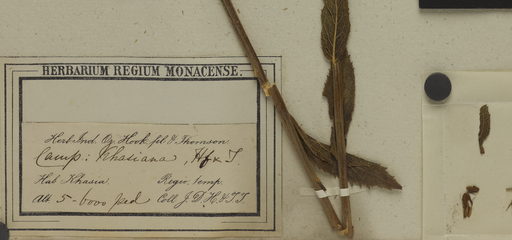 HERBARIUM REGIUM MONACENSE.
Herb. Ind. Or. Hook. fil. & Thomson.
Camp: Khasiana, Hf & T.
Hab. Khasia. Regio, temp.
Alt. 5-6000 ped Coll. J.D.H. & T.T.